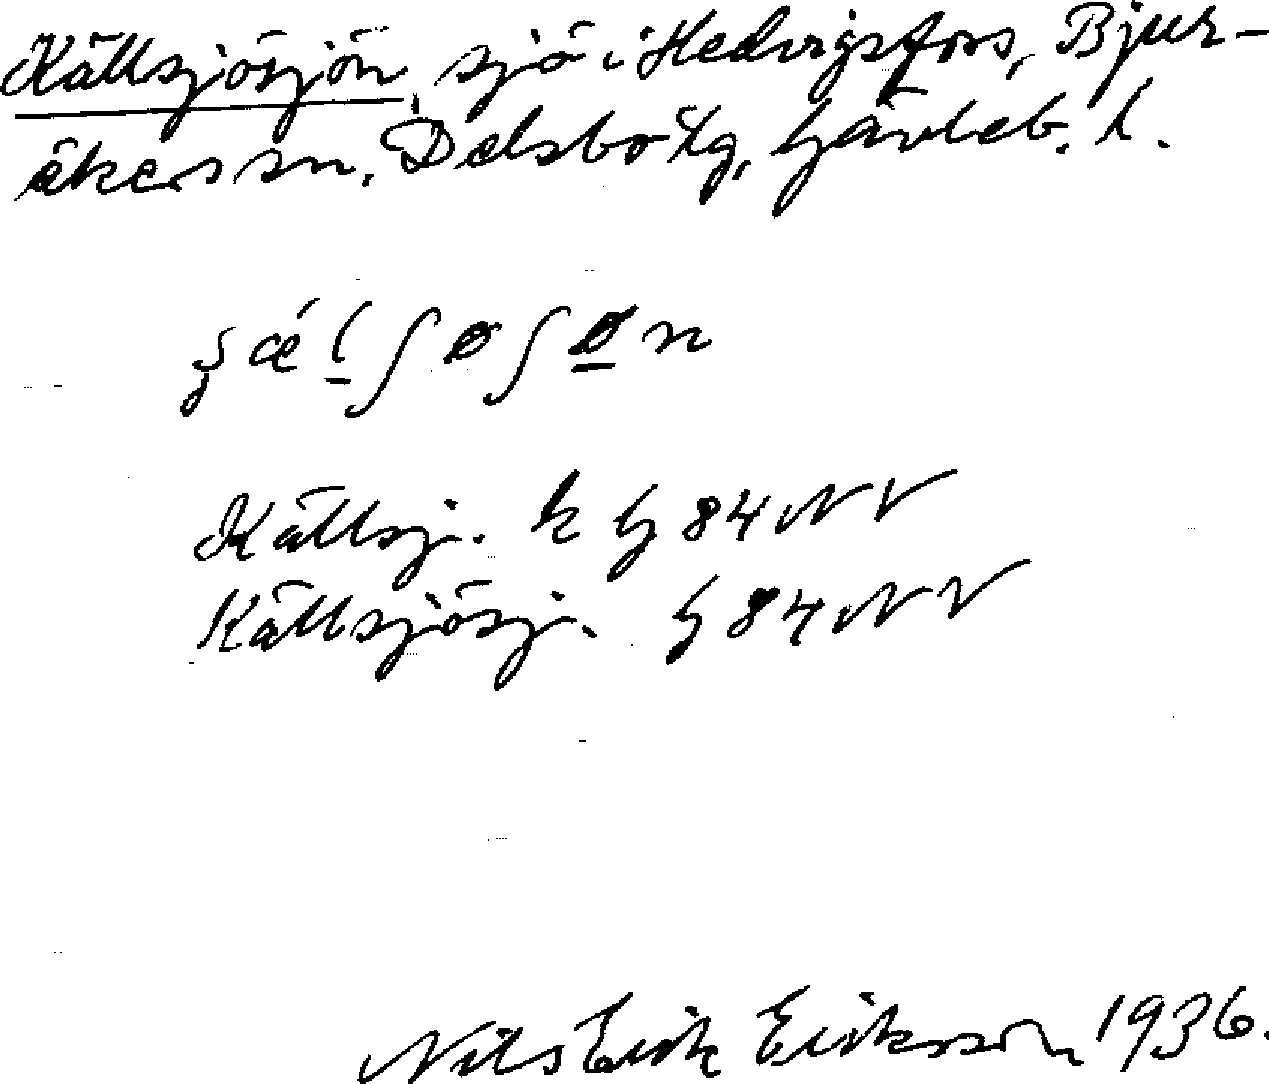 Källsjösjön, sjö i Hedvigsfors, Bjur-
åkers sn. Delsbo tg, Gävleb. l.
Källsj. k G 84 NV
Källsjösj. G 84 NV
Nils Erik Eriksson 1936.